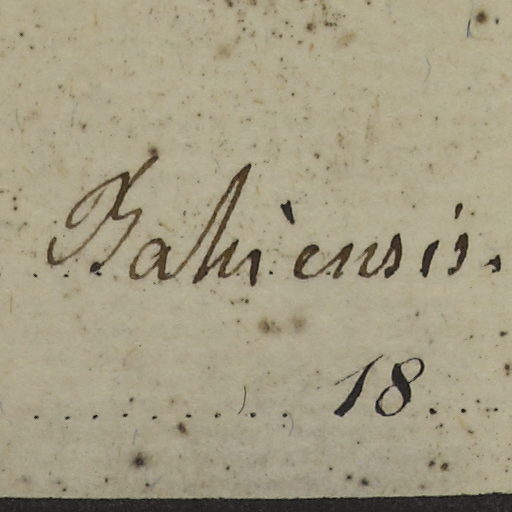 Bahiensis.
18